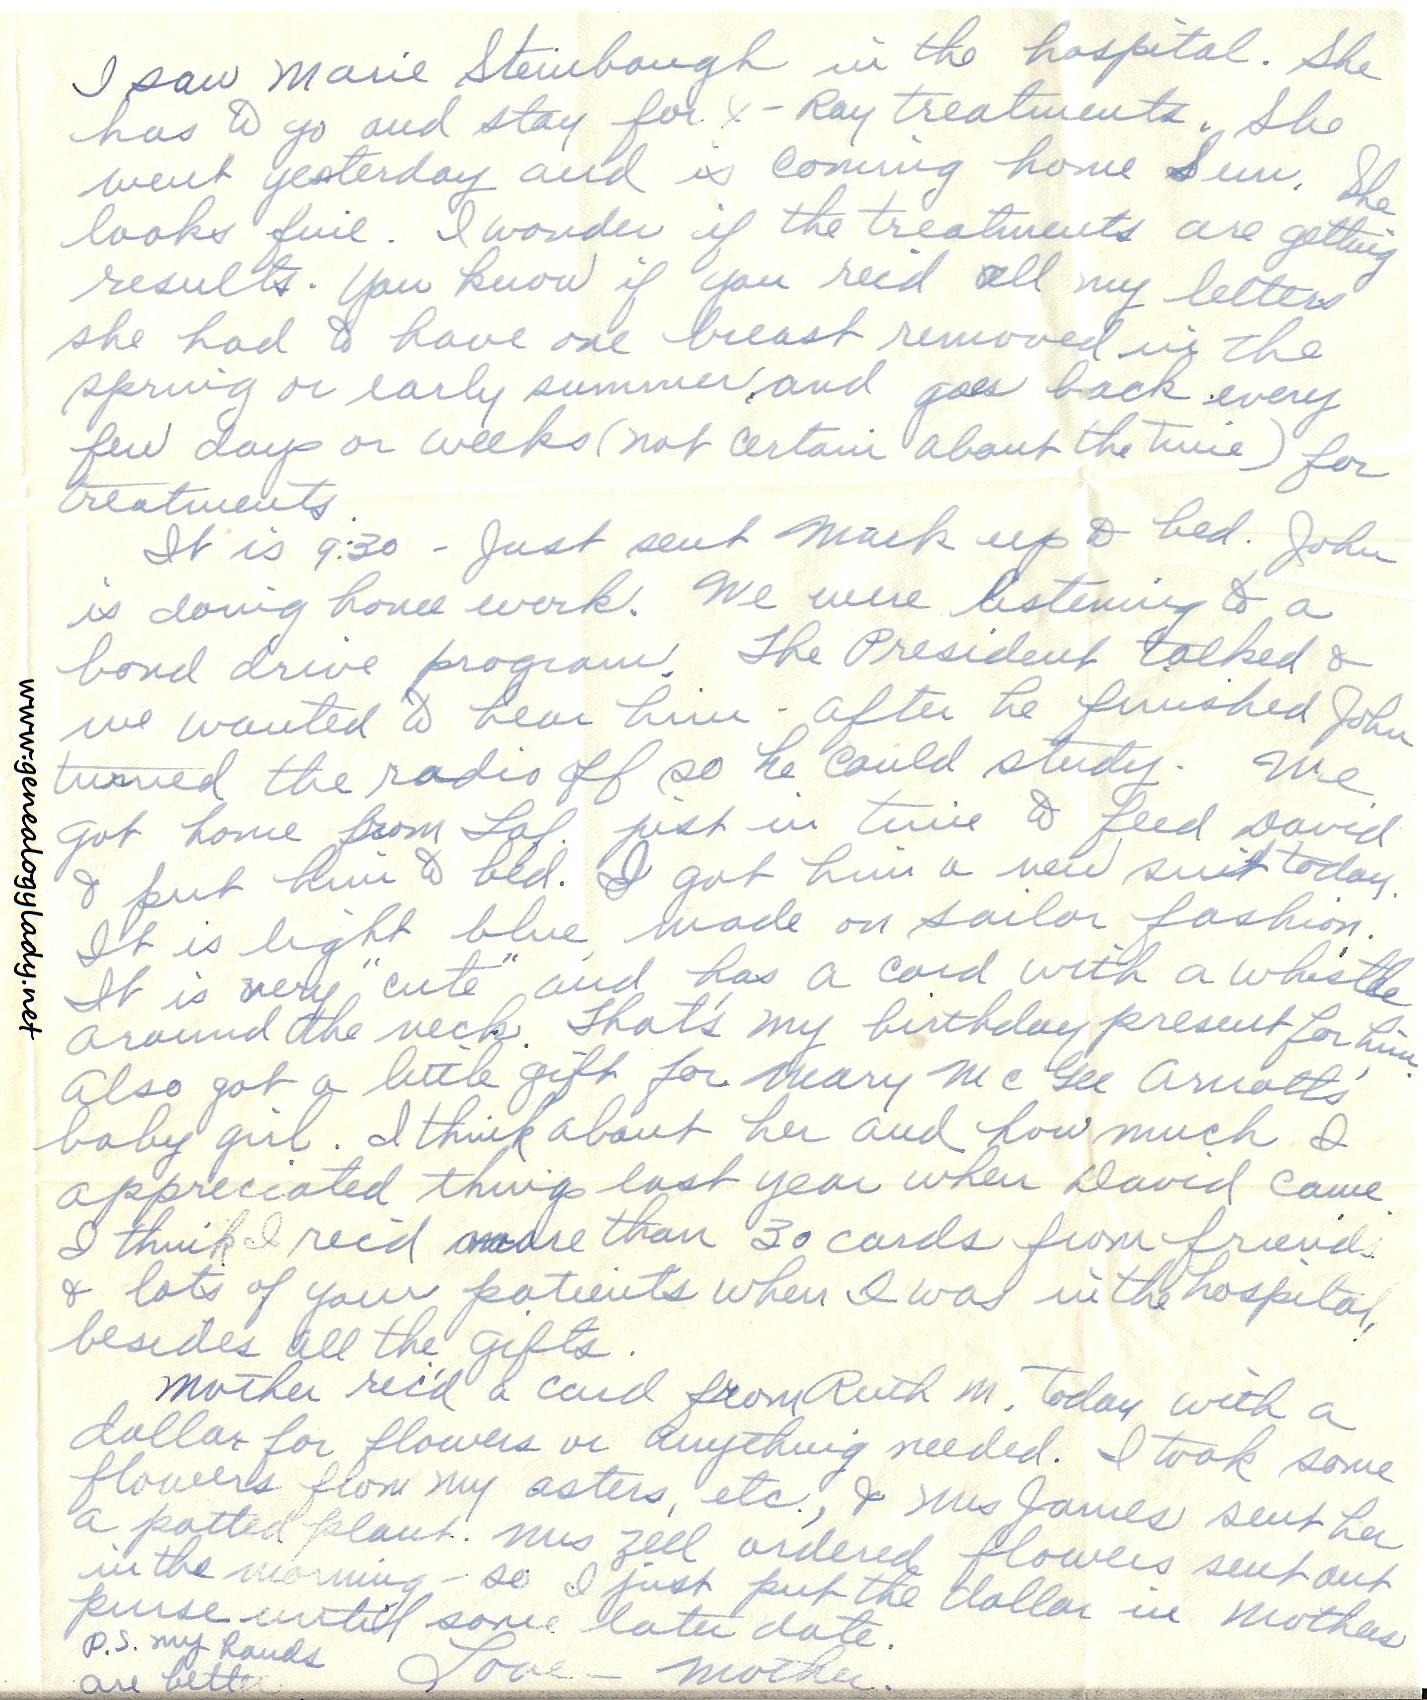 I saw Marie Steinbaugh in the hospital. She
has to go and stay for X-Ray treatments. She
went yesterday and is coming home Sun. She
looks fine. I wonder if the treatments are getting
results. You know if you rec'd all my letters
she had to have one breast removed in the
spring or early summer, and goes back every
few days or weeks (not certain about the time) for
treatments.
It is 9:30 - Just sent Mark up to bed. John
is doing home work. We were listening to a
bond drive program. The President talked &
we wanted to hear him - after he finished John
turned the radio off so he could study. We
got home from Laf. just in time to feed David
& put him to bed. I got him a new suit today.
It is light blue, made on sailor fashion.
It is very "cute" and has a cord with a whistle
around the neck. That's my birthday present for him.
Also got a little gift for Mary McGee Arnott's
baby girl. I think about her and how much I
appreciated things last year when David came.
I think I rec'd more than 30 cards from friends
& lots of your patients when I was in the hospital,
besides all the gifts.
Mother rec'd a card from Ruth M. today with a
dollar for flowers or anything needed. I took some
flowers from my asters, etc., & Mrs James sent her
a potted plant. Mrs Zeel ordered flowers sent out
in the morning - so I just put the dollar in Mothers
purse until some later date.
Love - Mother.
P.S. My hands
are better
www.genealogylady.net